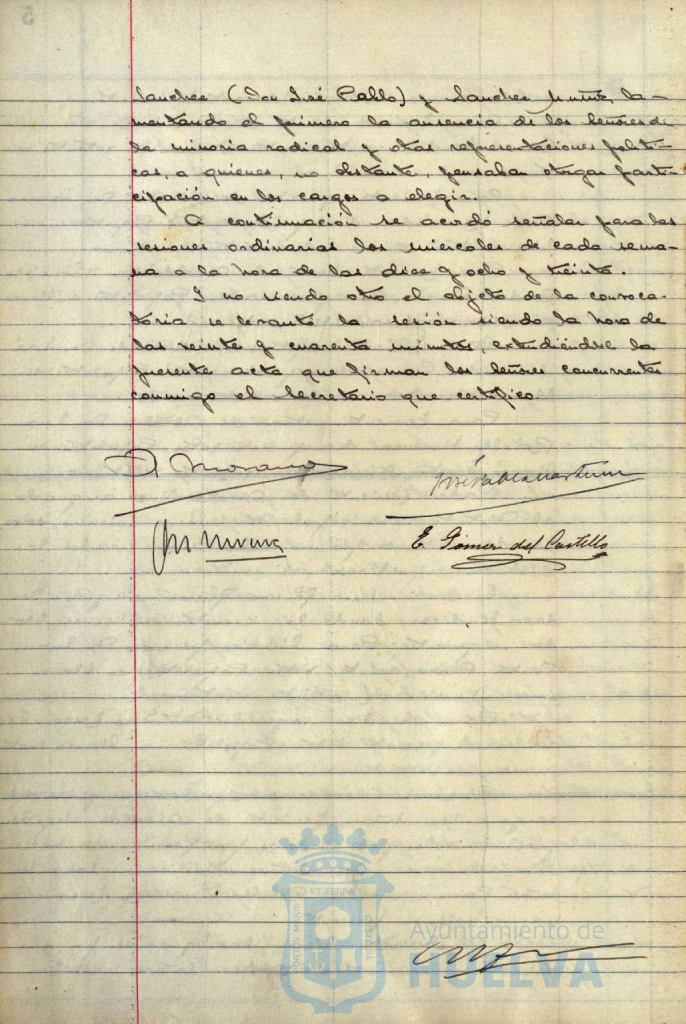 Sanchez (Don José Pablo) y Sanchez Muñiz, la-
mentando el primero la ausencia de los señores de
la minoria radical y otras representaciones politi-
cas, a quienes, no obstante, pensaban otorgar parti-
cipación en los cargos a elegir.
A continuación se acordó señalar para las
sesiones ordinarias los miercoles de cada sema-
na a la hora de las diez y ocho y treinta.
Y no siendo otro el objeto de la convoca-
toria se levantó la sesión siendo la hora de
las veinte y cuarenta minutos, extendiéndose la
presente acta que firman los señores concurrentes
conmigo el Secretario que certifico.
E. Gómez del Castillo
ET TERRA
PORTUS MARIS
CUSTODIA
Ayuntamiento de
HUELVA